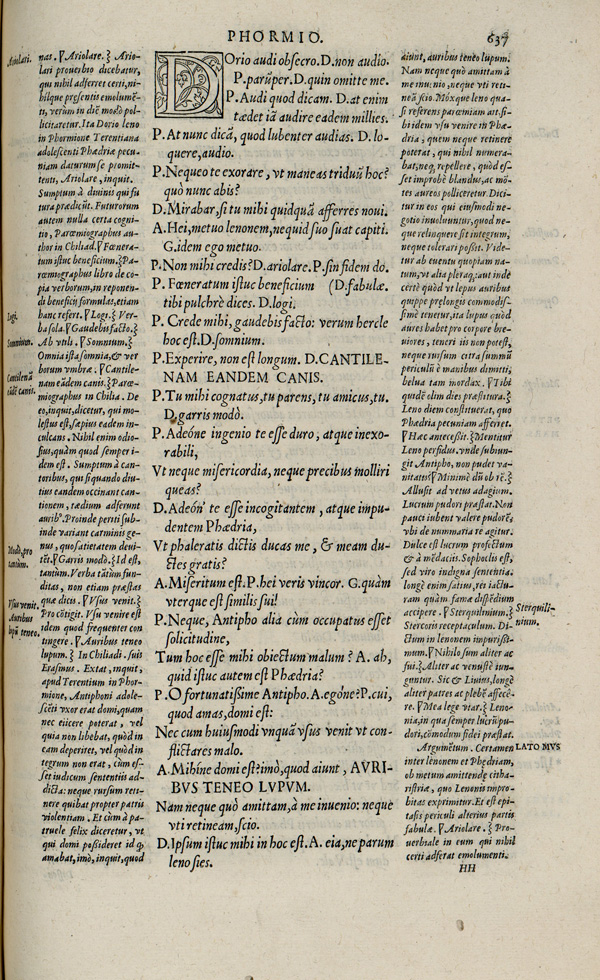 PHORMIO.
637
Ariolari.
Logi.
Somnium.
Cantilenā
eādē canis.
Modo, pro
tantum.
Vsu venit.
Auribus
lupū teneo.
nat. ¶Ariolare.} Ario-
lari prouerbio dicebatur,
qui nihil adferret certi, ni-
hilque præsentis emolumē-
ti, verum in diē modò pol-
licitaretur. Ita Dorio leno
in Phormione Terentiana
adolescenti Phædriæ pecu-
niam daturum se promit-
tenti, Ariolare, inquit.
Sumptum à diuinis qui fu
tura prædicūt. Futurorum
autem nulla certa cogni-
tio, Parœmiographus au-
thor in Chiliad. ¶Fœnera-
tum istuc beneficium.}Pa-
rœmiographus libro de co-
pia verborum, in reponen-
di beneficij formulas, etiam
hanc refert. ¶Logi.} Ver-
ba sola. ¶Gaudebis facto.}
Ab vtili. ¶Somnium.}
Omnia ista somnia, & ver
borum vmbræ. ¶Cantile-
nam eādem canis.} Parœ-
miographus in Chilia. De
eo, inquit, dicetur, qui mo-
lestus est, sæpius eadem in-
culcans. Nihil enim odio-
sius, quàm quod semper i-
dem est. Sumptum à can-
toribus, qui siquando diu-
tius eandem occinant can-
tionem, tædium adferunt
aurib⁹. Proinde periti sub-
inde variant carminis ge-
nus, quo satietatem deui-
tēt. ¶Garris modò.} Id est,
tantùm. Verba tātùm fun-
ditas, non etiam præstas
quæ dicis. ¶Vsus venit.}
Pro cōtigit. Vsu venire est
idem quod frequenter con
tingere. ¶Auribus teneo
lupum.} In Chiliadi. suis
Erasmus. Extat, inquit,
apud Terentium in Phor-
mione, Antiphoni adole-
scēti vxor erat domi, quam
nec eiicere poterat, vel
quia non libebat, quòd in
eam deperiret, vel quòd in
tegrum non erat, cùm es-
set iudicum sententiis ad-
dicta: neque rursum reti-
nere quibat propter patris
violentiam. Et cùm à pa-
truele felix diceretur, vt
qui domi possideret id qđ
amabat, imò, inquit, quod
DOrio audi obsecro. D. non audio.
P. parūper. D. quin omitte me.
P. Audi quod dicam. D. at enim
tædet iā audire eadem millies.
P. At nunc dicā, quod lubenter audias. D. lo-
quere, audio.
P. Nequeo te exorare, vt maneas triduū hoc?
quò nunc abis?
D. Mirabar, si tu mihi quidquā afferres noui.
A. Hei, metuo lenonem, nequid suo suat capiti.
G. idem ego metuo.
P. Non mihi credis? D. ariolare. P. sin fidem do.
P. Fœneratum istuc beneficium (D. fabulæ.
tibi pulchrè dices. D. logi.
P. Crede mihi, gaudebis facto: verum hercle
hoc est. D. somnium.
P. Experire, non est longum. D. CANTILE-
NAM EANDEM CANIS.
P. Tu mihi cognatus, tu parens, tu amicus, tu.
D. garris modò.
P. Adeóne ingenio te esse duro, atque inexo-
rabili,
Vt neque misericordia, neque precibus molliri
queas?
D. Adeón' te esse incogitantem, atque impu-
dentem Phædria,
Vt phaleratis dictis ducas me, & meam du-
ctes gratis?
A. Miseritum est. P. hei veris vincor. G. quàm
vterque est similis sui!
P. Neque, Antipho alia cùm occupatus esset
solicitudine,
Tum hoc esse mihi obiectum malum? A. ah,
quid istuc autem est Phædria?
P. O fortunatissime Antipho. A. egóne? P. cui,
quod amas, domi est:
Nec cum huiusmodi vnquā vsus venit vt con-
flictares malo.
A. Mihíne domi est? imò, quod aiunt, AVRI-
BVS TENEO LVPVM.
Nam neque quò amittam, à me inuenio: neque
vti retineam, scio.
D. Ipsum istuc mihi in hoc est. A. eia, ne parum
leno sies.
aiunt, auribus teneo lupum.
Nam neque quò amittā à
me inuenio, neque vti reti-
neā scio. Móxque leno qua-
si referens parœmiam ait, si-
bi idem vsu venire in Phæ-
dria, quem neque retinere
poterat, qui nihil numera-
bat, neq; repellere, quòd es-
set improbè blandus, ac mō-
tes aureos polliceretur. Dici-
tur in eos qui eiusmodi ne-
gotio inuoluuntur, quod ne-
que relinquere sit integrum,
neque tolerari possit. Vide-
tur ab euentu quopiam na-
tum, vt alia pleraq;: aut inde
certè quòd vt lepus auribus
quippe prælongis commodis-
simè tenetur, ita lupus quòd
aures habet pro corpore bre-
uiores, teneri iis non potest,
neque rursum citra summū
periculū è manibus dimitti,
belua tam mordax. ¶Tibi
quidē olim dies præstitura.}
Leno diem constituerat, quo
Phædria pecuniam afferret.
¶Hac antecessit.} Mentitur
Leno perfidus. vnde subiun-
git Antipho, non pudet va-
nitatis? ¶Minimè dū ob rē.}
Allusit ad vetus adagium.
Lucrum pudori præstat. Non
pauci iubent valere pudorē,
vbi de nummaria re agitur.
Dulce est lucrum profectum
& à mēdaciis. Sophoclis est,
sed viro indigna sententia:
longè enim satius, rei iactu-
ram quàm famæ dispēdium
accipere. ¶Sterquilinium.}
Stercoris receptaculum. Di-
ctum in lenonem impurissi-
mum. ¶Nihilo sum aliter ac
fui.} Aliter ac venustè iun-
guntur. Sic & Liuius, longè
aliter patres ac plebē affecē-
re. ¶Mea lege vtar.} Leno-
nia, in qua semper lucrū pu-
dori, cōmodum fidei præstat.
Argumētum. Certamen
inter lenonem et Phędriam,
ob metum amittendæ citha-
ristriæ, quo Lenonis impro-
bitas exprimitur. Et est epi-
tasis periculi alterius partis
fabulæ. ¶Ariolare.} Pro-
uerbiale in eum qui nihil
certi adferat emolumenti.
Sterquili-
nium.
LATOMVS
HH